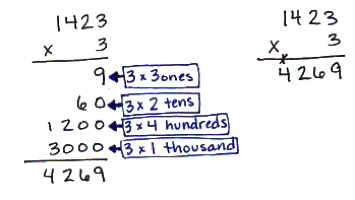 1423
x 3
9 3 x 3 ones
60 3 x 2 tens
1200 3 x 4 hundreds
3000 3 x 1 thousand
4269
1423
x 3
4269